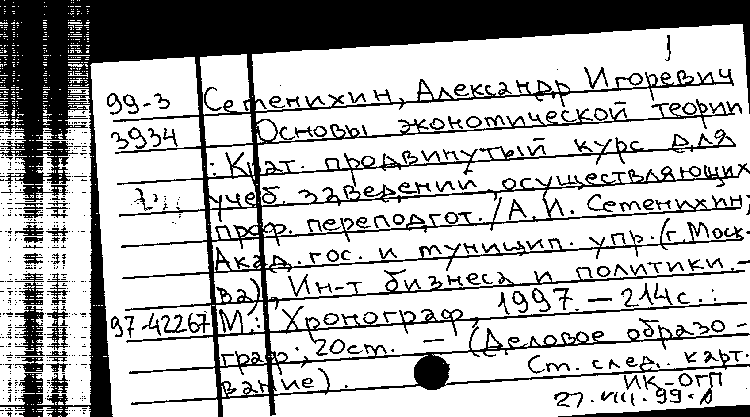 99-3 Сетенихин, Александр Игоревич
3934 Основы экономической теории
: Крат. продвинутый курс для
учеб. заведений, осуществляющих
проф. переподгот. / А. И. Сетенихин;
Акад. гос. и муницип. упр. (г. Моск-
ва), Ин-т бизнеса и политики. –
97-42267 М.: Хронограф, 1997. – 214 с. :
граф.; 20 см. – (Деловое образо-
вание).
См. след. карт.
ИК-ОГП
27.VIII.99